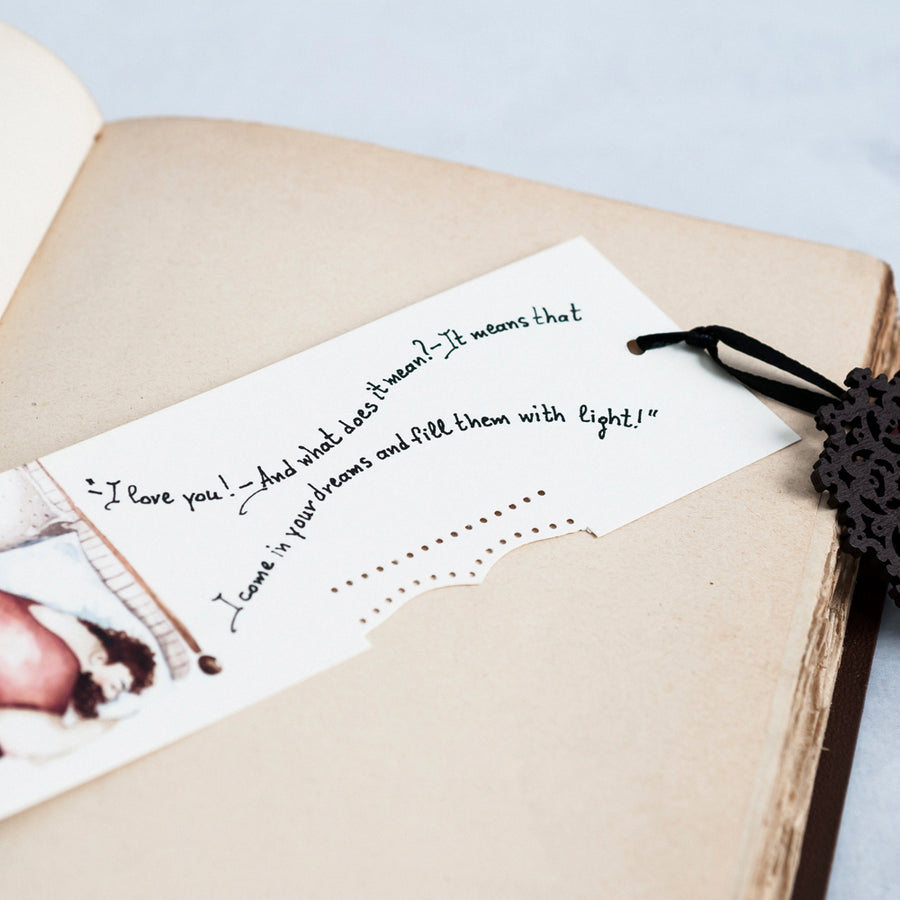 "-I love you!-And what does it mean?-It means that
I come in your dreams and fill them with light!"